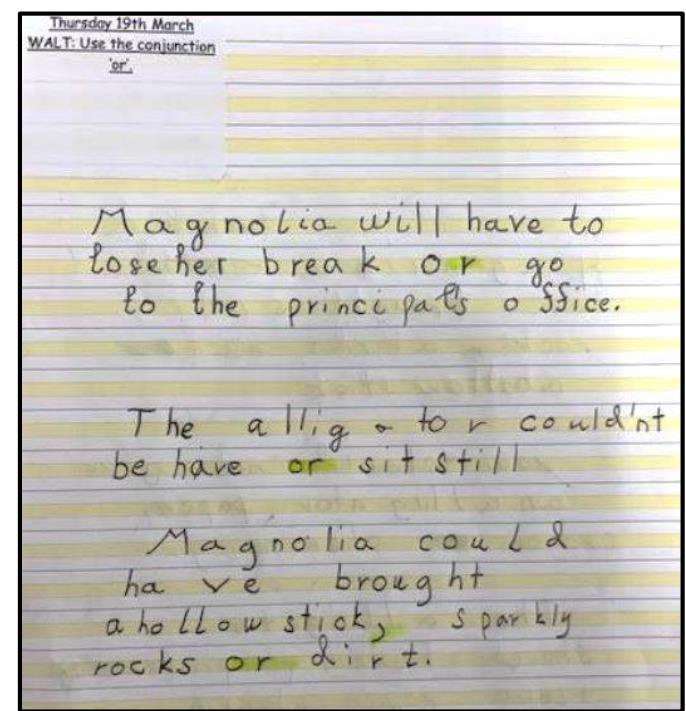 Thursday 19th March
WALT: Use the conjunction
'or'.
Magnolia will have to
lose her break or go
to the principal's office.
The alligator could'nt
behave or sit still
Magnolia could
have brought
a hollow stick, sparkly
rocks or dirt.